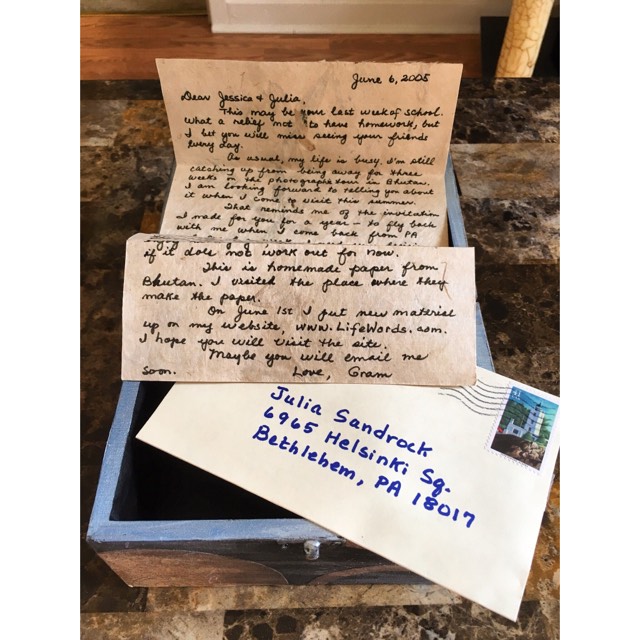 June 6, 2005
Dear Jessica & Julia,
This may be your last week of school.
What a relief not to have homework, but
I bet you will miss seeing your friends
every day.
As usual, my life is busy. I'm still
catching up from being away for three
weeks on the photography tour in Bhutan.
I am looking forward to telling you about
it when I come to visit this summer.
That reminds me of the invitation
I made for you for a year - to fly back
with me when I come back from PA
if it does not work out for now.
This is homemade paper from
Bhutan. I visited the place where they
make the paper.
On June 1st I put new material
up on my website, www.LifeWords.com.
I hope you will visit the site.
Maybe you will email me
soon. Love, Gram
Julia Sandrock
6965 Helsinki Sq.
Bethlehem, PA 18017